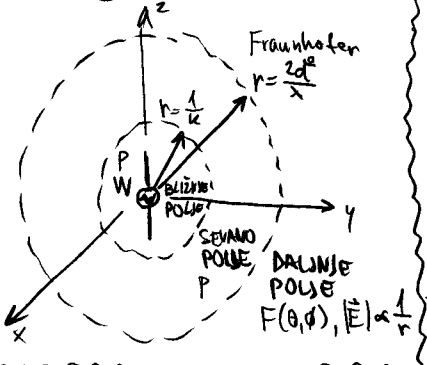 z
Fraunhofer
r = 2d²/λ
r = 1/k
P
W
BLIŽNJE
POLJE
y
SEVANO
POLJE
P
DALJNJE
POLJE
F(θ,ϕ), |E⃗| ∝ 1/r
x